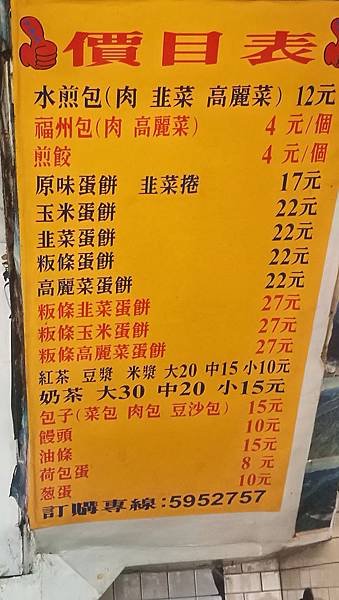 價目表
水煎包(肉 韭菜 高麗菜) 12元
福州包(肉 高麗菜) 4 元/個
煎餃 4 元/個
原味蛋餅 韭菜捲 17元
玉米蛋餅 22元
韭菜蛋餅 22元
粄條蛋餅 22元
高麗菜蛋餅 22元
粄條韭菜蛋餅 27元
粄條玉米蛋餅 27元
粄條高麗菜蛋餅 27元
紅茶 豆漿 米漿 大20 中15 小10元
奶茶 大30 中20 小15元
包子(菜包 肉包 豆沙包) 15元
饅頭 10元
油條 15元
荷包蛋 8 元
葱蛋 10元
訂購專線:5952757